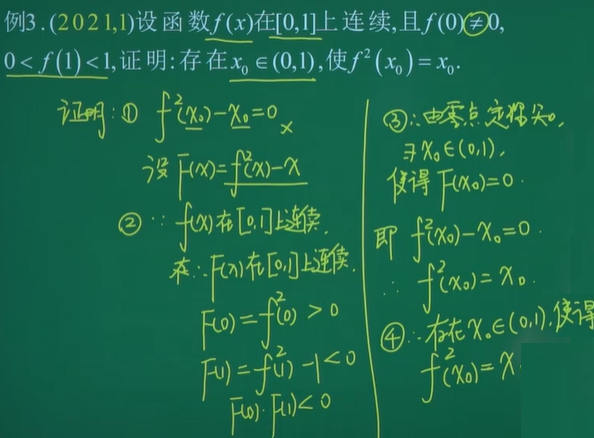 例3.(2021,1)设函数f(x)在[0,1]上连续,且f(0)≠0,
0<f(1)<1,证明:存在x₀∈(0,1),使f²(x₀)=x₀.
证明:① f²(x₀)-x₀=0
x
设F(x)=f²(x)-x
② ∵ f(x)在[0,1]上连续.
∴F(x)在[0,1]上连续.
F(0)=f²(0)>0
F(1)=f²(1)-1<0
F(0)·F(1)<0
③∴由零点定理知,
∃x₀∈(0,1),
使得F(x₀)=0.
即 f²(x₀)-x₀=0.
∴ f²(x₀)=x₀.
④∴存在x₀∈(0,1),使得
f²(x₀)=x